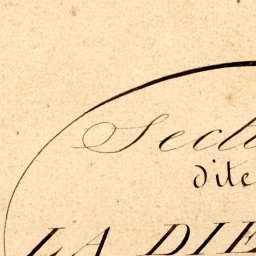 Secti
dite
LA DIE